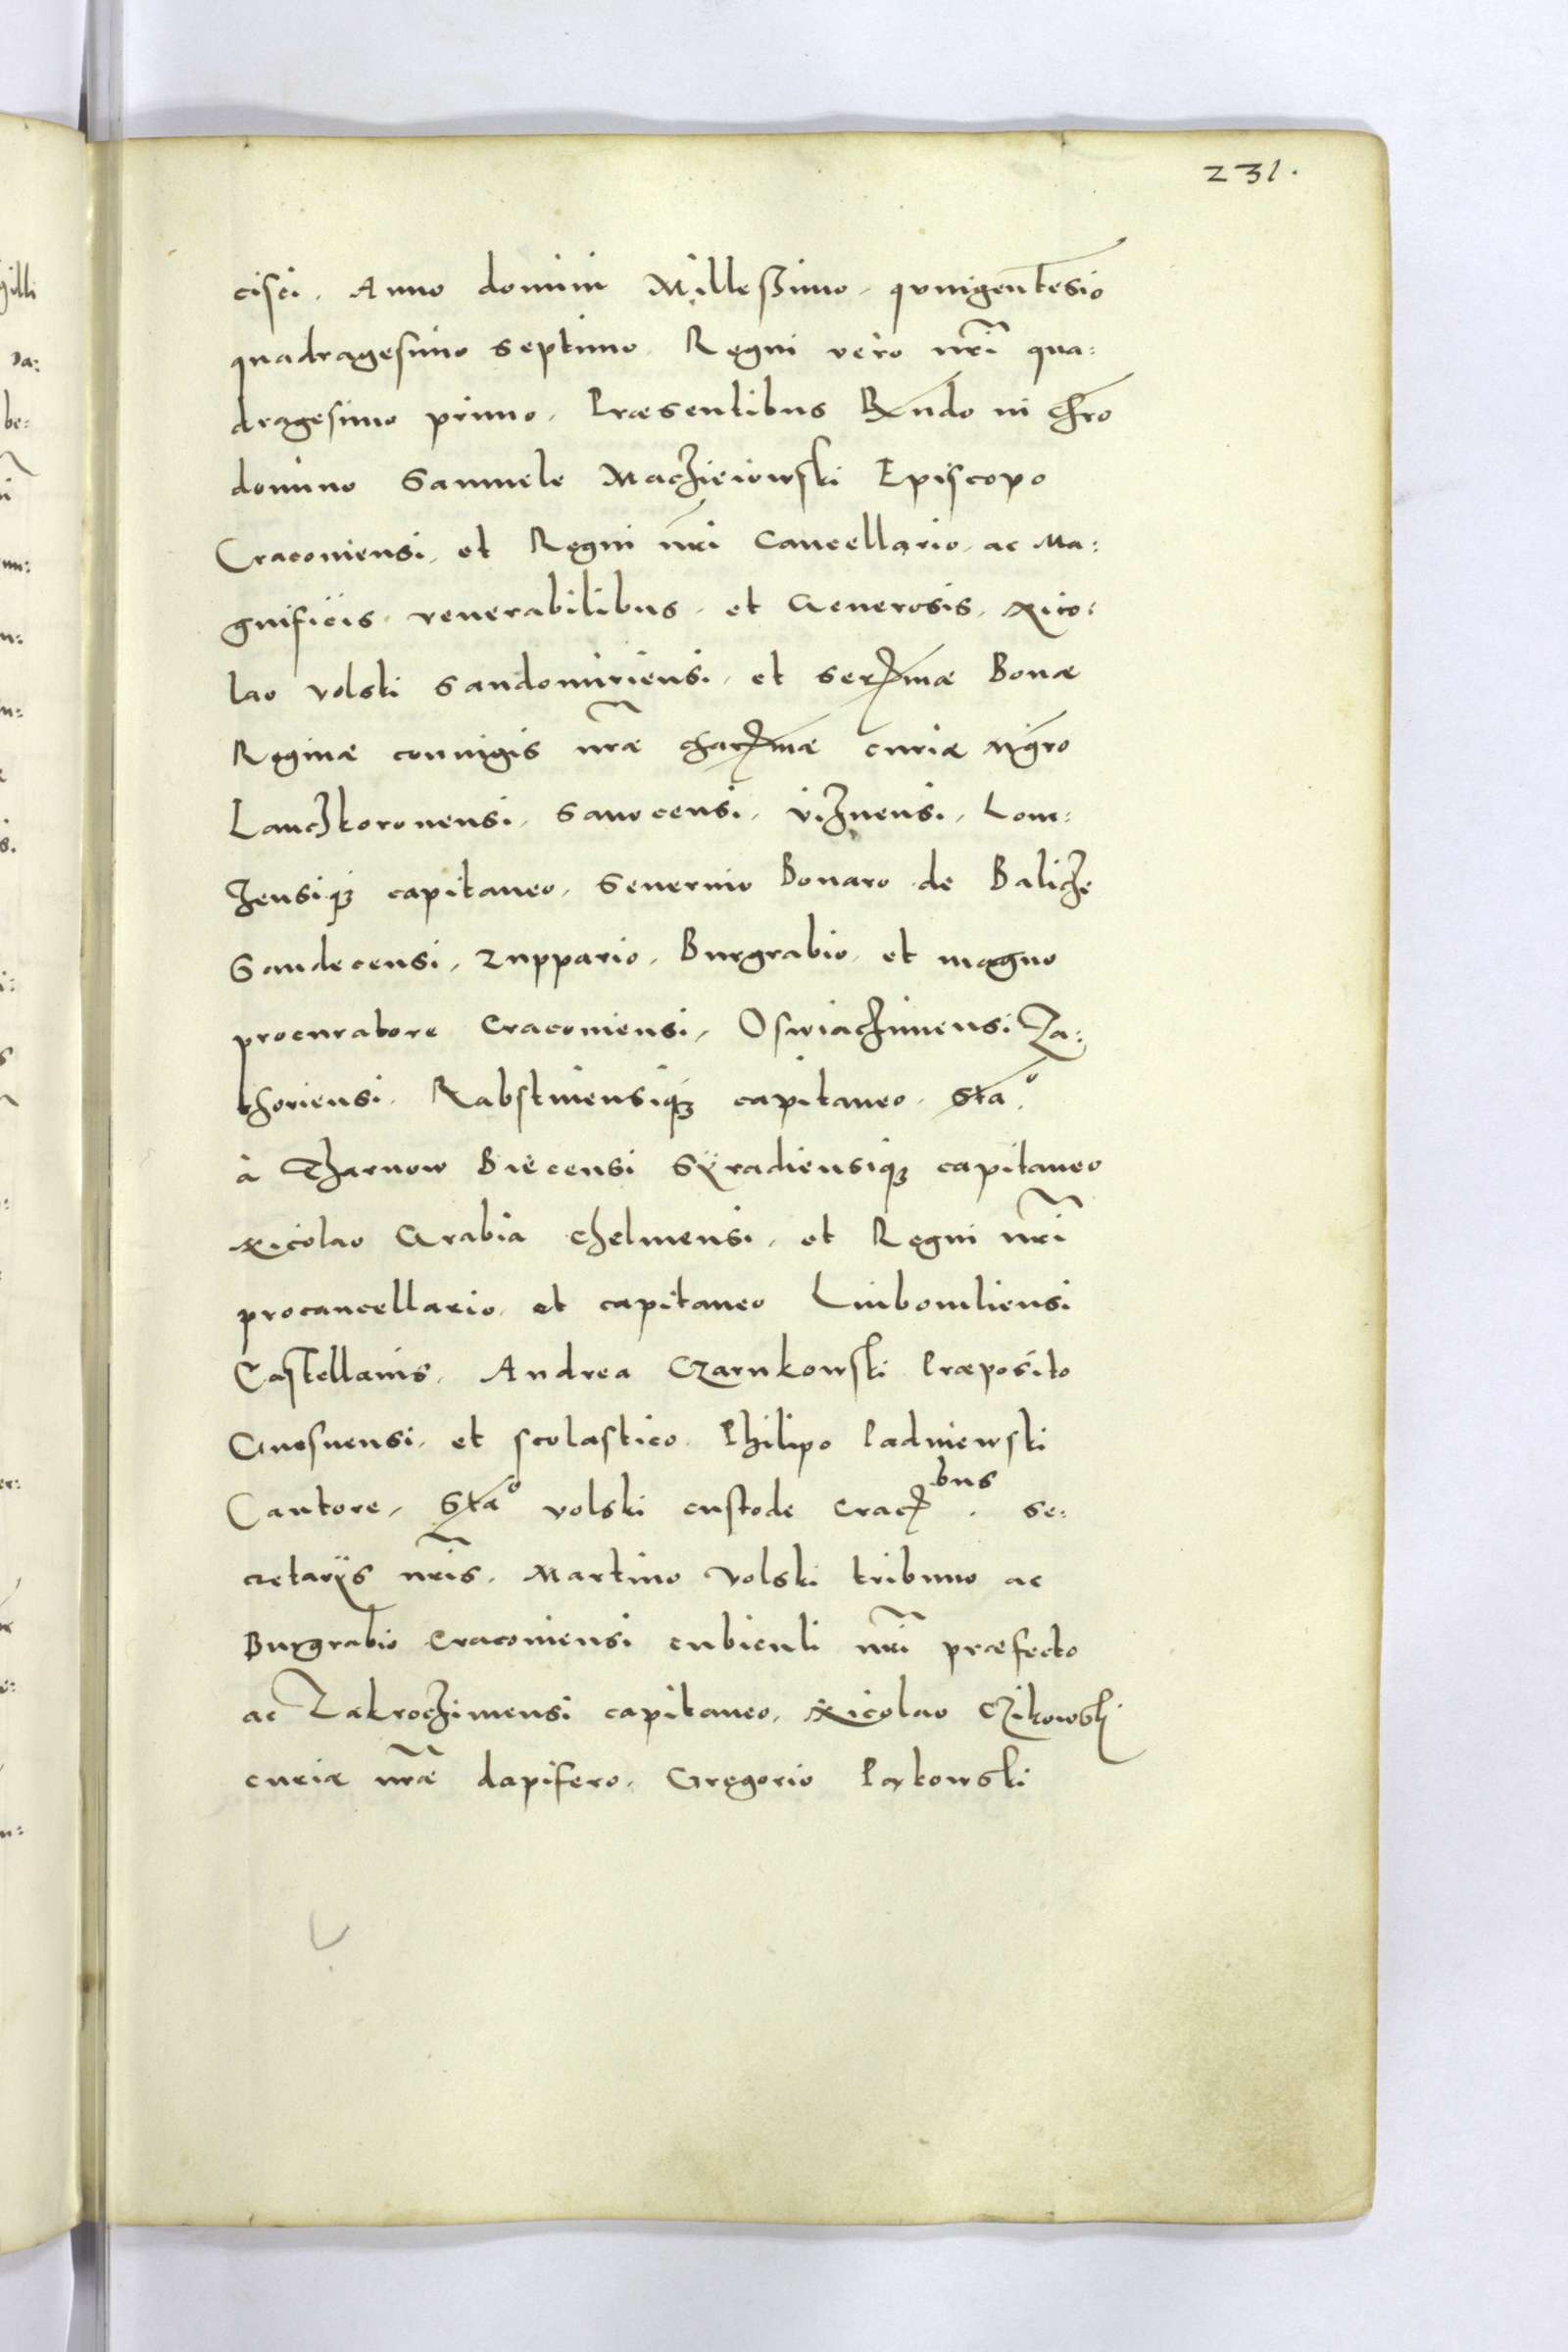 231.
cisci. Anno domini Milleßimo. qvingentesio
quadragesimo septimo. Regni vero nr̃i qua:
dragesimo primo. Præsentibus Rx̃ndo in chr̃o
domino Samuele Maczieiowski Episcopo
Cracouiensi. et Regni nr̃i Cancellario. ac Ma:
gnificis. venerabilibus. et Generosis. Nico:
lao volski Sandomiriensi. et serx̃mæ Bonæ
Reginæ coniugis nr̃æ charx̃mæ curiæ Mg̃ro
Lanczkoronensi. Sanocensi. viznensi. Lom:
zensiq3 capitaneo. Seuerino Bonaro de Balicze
Sandecensi. zuppario. Burgrabio. et magno
procuratore Cracouiensi. Oswiaczimensi Za:
thoriensi. Rabstinensiq3 capitaneo. Stao.
à Tharnow Biecensi Sÿradiensiq3 capitaneo
Nicolao Grabia Chelmensi. et Regni nr̃i
procancellario. et capitaneo Luibomliensi
Castellanis. Andrea Czarnkowski Præposito
Gnesnensi. et scolastico. Philipo Padniewski
Cantore. Stao volski custode Cracbus. se:
cretarÿs nr̃is. Martino volski tribuno ac
Burgrabio Cracouiensi cubiculi nr̃i præfecto
ac Zakroczimensi capitaneo. Nicolao Czikowski
curiæ nr̃æ dapifero. Gregorio Parkowski